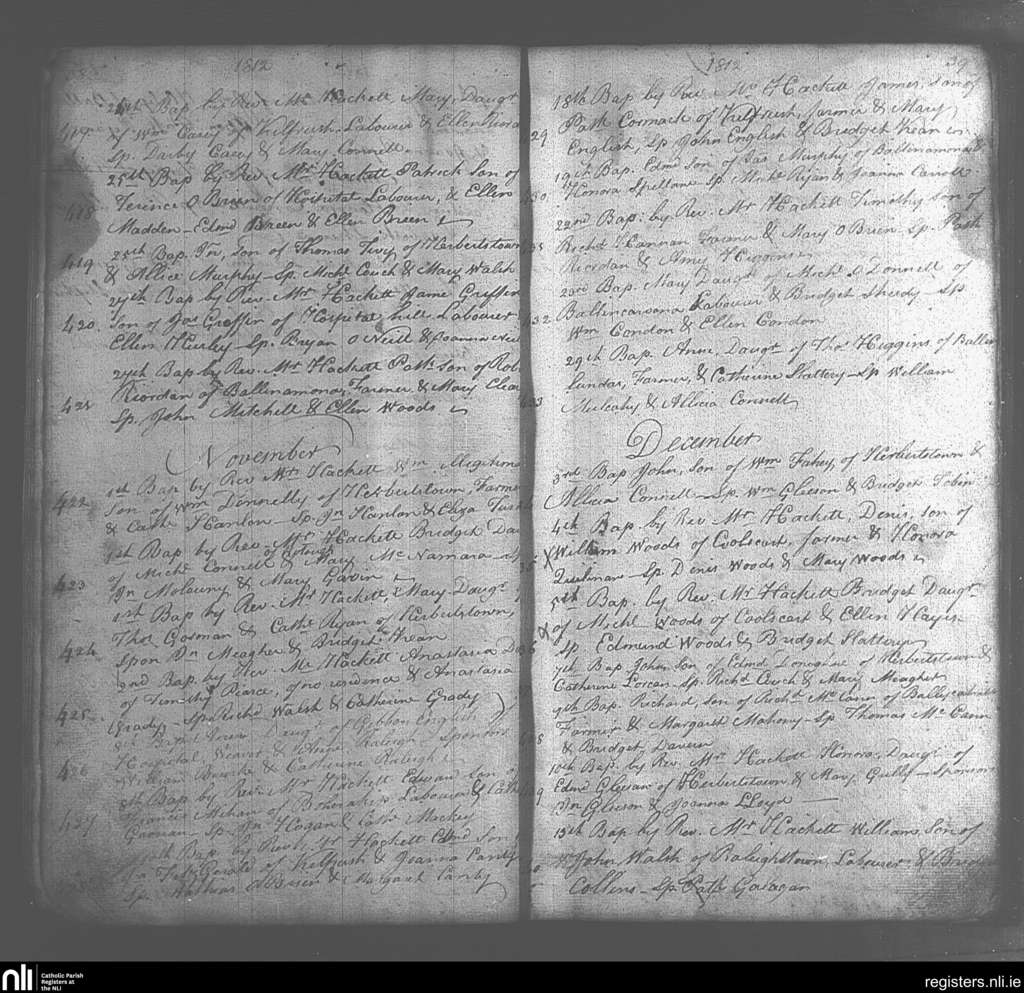 1812
24th Bap by Rev. Mr. Hackett Mary, Daugt
417 of Wm Casey of Kilfrush, Labourer & Ellen
Sp. Darby Casey & Mary Connell
25th Bap by Rev. Mr. Hackett Patrick Son of
418 Terence O Brien of Hospital Labourer, & Ellen
Madden - Edmd Breen & Ellen Breen
25th Bap. Jn, Son of Thomas Ivy of Herbertstown
419 & Allice Murphy - Sp. Michl Couch & Mary Walsh
27th Bap by Rev. Mr. Hackett James Griffin
420 Son of Jas Griffin of Hospital hill Labourer
Ellen Hurley - Sp. Bryan O Neill & Joanna Neil
27th Bap by Rev. Mr. Hackett Patk Son of Robt
421 Riordan of Ballinamona, Farmer & Mary
Sp. John Mitchell & Ellen Woods
November
1st Bap by Rev Mr Hackett Wm Illegitime
422 Son of Wm Donnelly of Herbertstown, Farmer
& Cathe Hanlon - Sp. Jn Hanlon & Eliza
1st Bap by Rev. Mr. Hackett Bridget Da
423 of Michl Connell of & Mary Mc Namara
Jn Molauny & Mary Gavin
1st Bap by Rev. Mr Hackett, Mary Daugt
424 Thos Gorman & Cathe Ryan of Herbertstown,
Spon Dn Meagher & Bridget Hrean
2nd Bap. by Rev. Mr. Hackett Anastasia D
of Timothy Pearce, of no residence & Anastasia
425 Grady - Sp. Richd Walsh & Catherine Grady
8th Bapt. Daug of Gibbon English
426 Hospital & Anne Raleigh - Sponsors
William Bourke & Catherine Raleigh
8th Bap by Rev. Mr Hackett Edward Son of
427 Francis Mehan of Labourer & Cath
Sp. Jn Hogan & Cathe Mackey
Bap by Rev. Mr Hackett Edmd Son
Fitzgerald of Kilfrush & Joanna
Sp. O Brien & Margaret
1812
39
18th Bap by Rev. Mr. Hackett James, Son of
29 Patk Cormack of Kilfrush, farmer & Mary
English, Sp. John English & Bridget Kean
19th Bap. Edmd Son of Jas Murphy of Ballinamona &
430 Honora Spellane Sp. Michl Ryan & Joanna Carroll
22nd Bap. by Rev. Mr Hackett Timothy Son of
Richd Hannan Farmer & Mary O Brien - Sp. Patk
Riordan & Amy Higgins
23rd Bap. Mary Daugt of Michl O Donnell of
432 Ballincarroona Labourer & Bridget Sheedy - Sp
Wm Condon & Ellen Condon
29th Bap. Anne, Daugt of Thos Higgins of Ballin
lundar, Farmer, & Catherine Slattery - Sp William
433 Mulcahy & Allicia Connell
December
3rd Bap John, Son of Wm Fahey, of Herbertstown &
Allicia Connell - Sp. Wm Gleeson & Bridget Tobin
4th Bap. by Rev. Mr. Hackett, Denis, son of
35 X William Woods of Coolscart, farmer & Honora
Quilinan - Sp. Denis Woods & Mary Woods
5th Bap. by Rev. Mr. Hackett Bridget Daugt
X of Michl Woods of Coolscart & Ellen Hayes
Sp. Edmund Woods & Bridget Slattery
7th Bap. John Son of Edmd Donoghue of Herbertstown &
Catherine Lorcan - Sp. Richd Couch & Mary Meagher
9th Bap. Richard, Son of Richd Mc Cann of
Farmer & Margaret Mahony - Sp. Thomas Mc Cann
& Bridget Daveren
10th Bap. by Rev. Mr. Hackett Honora, Daugt of
Edmd Gleeson of Herbertstown & Mary Gully - Sponsors
Dn Gleeson & Joanna Lloyd
15th Bap. by Rev. Mr. Hackett William, Son of
John Walsh of Raleighstown, Labourer & Bridget
Collins - Sp. Patk Galagan
nli Catholic Parish
Registers at
the NLI
registers.nli.ie